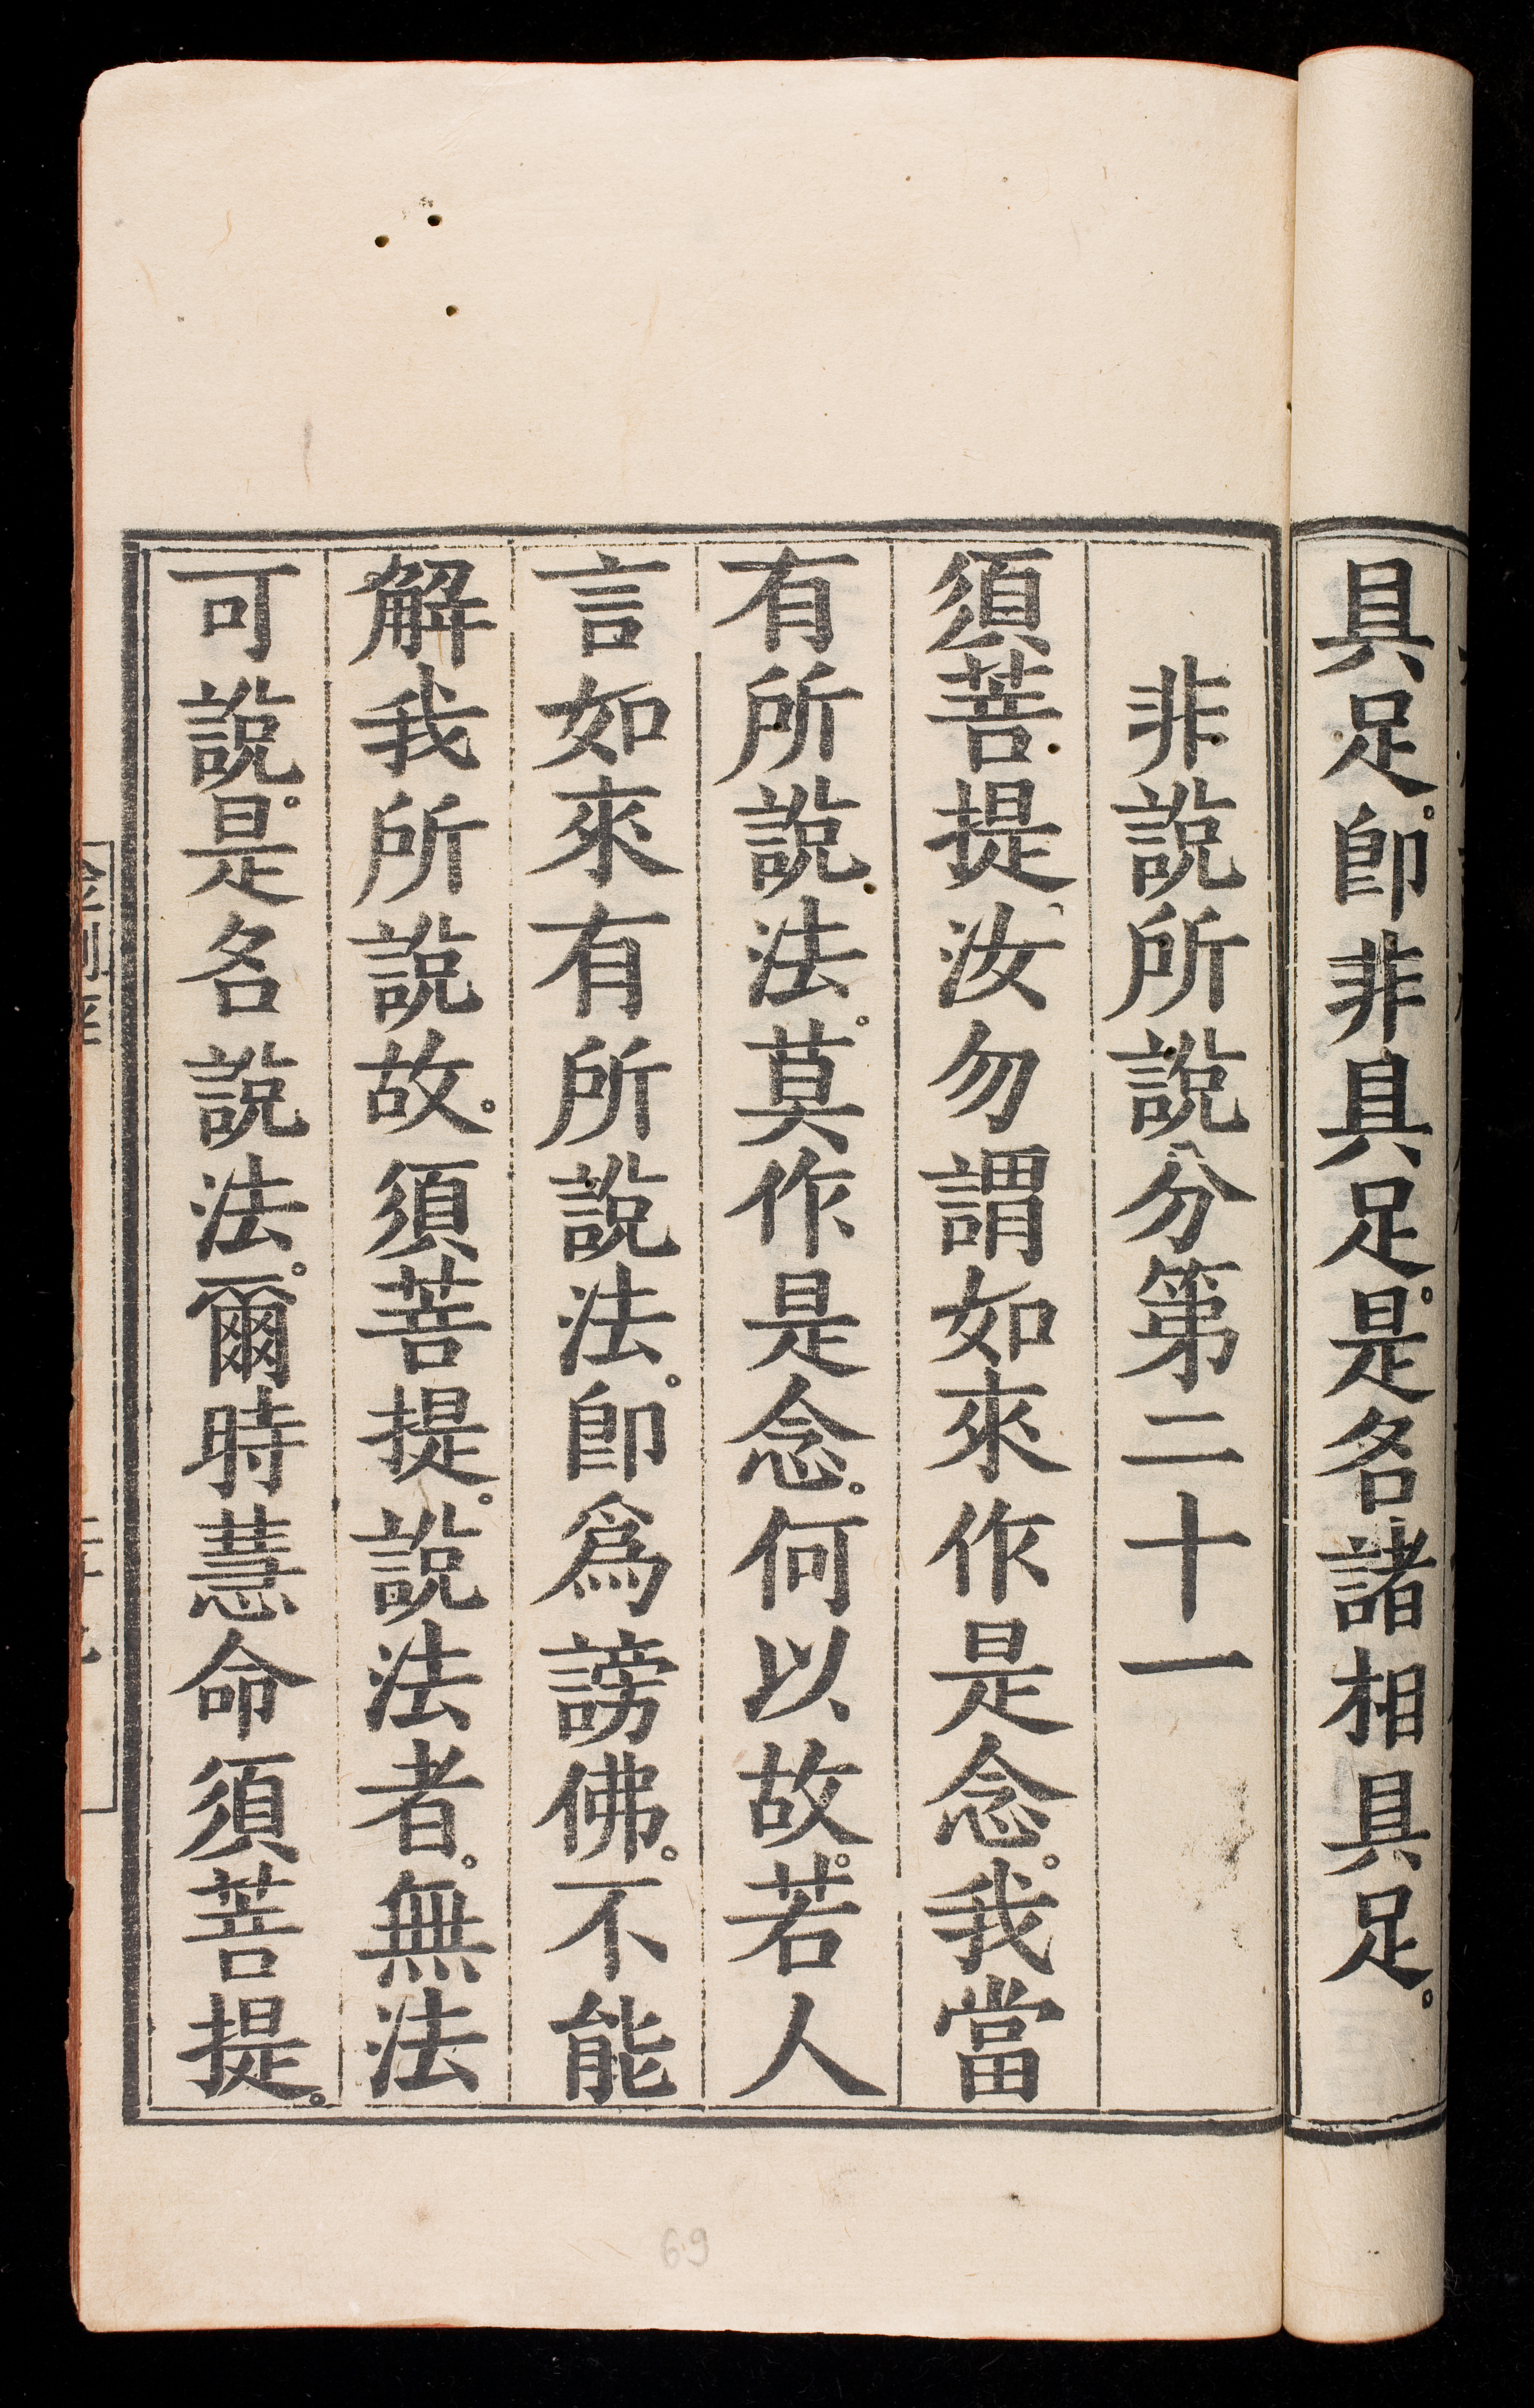 具足。卽非具足。是名諸相具足。
非說所說分第二十一
須菩提、汝勿謂如來作是念。我當
有所說法。莫作是念。何以故。若人
言如來有所說法。卽爲謗佛。不能
解我所說故。須菩提。說法者。無法
可說。是名說法。爾時慧命須菩提。
69